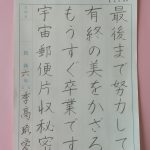 最後まで努力して
有終の美をかざろ
もうすぐ卒業です
宇宙郵便片収秘密
六年 李高